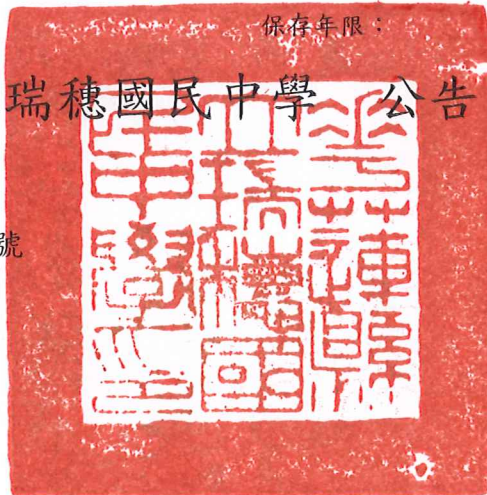 保存年限：
瑞穗國民中學　公告
號
花蓮縣
立瑞穗國
民中學印